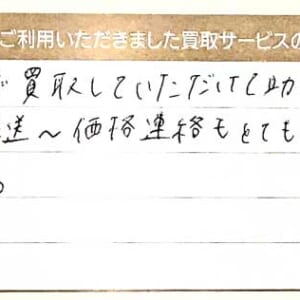 ご利用いただきました買取サービスの
で買取していただけて助
送～価格連絡もとても
。